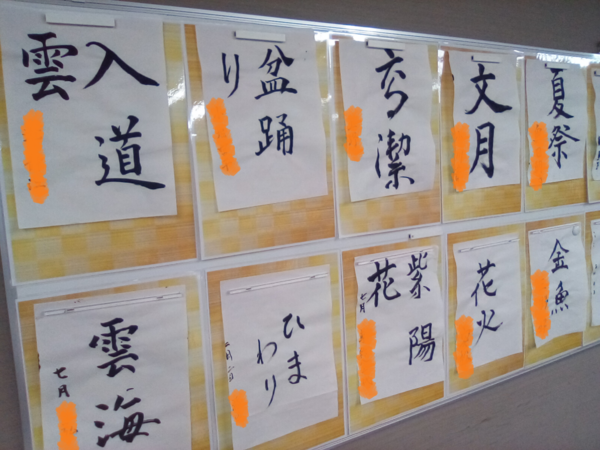 入道
雲
盆踊
り
高潔
文月
夏祭
雲海
七月
ひま
わり
紫陽
花
七月
花火
金魚